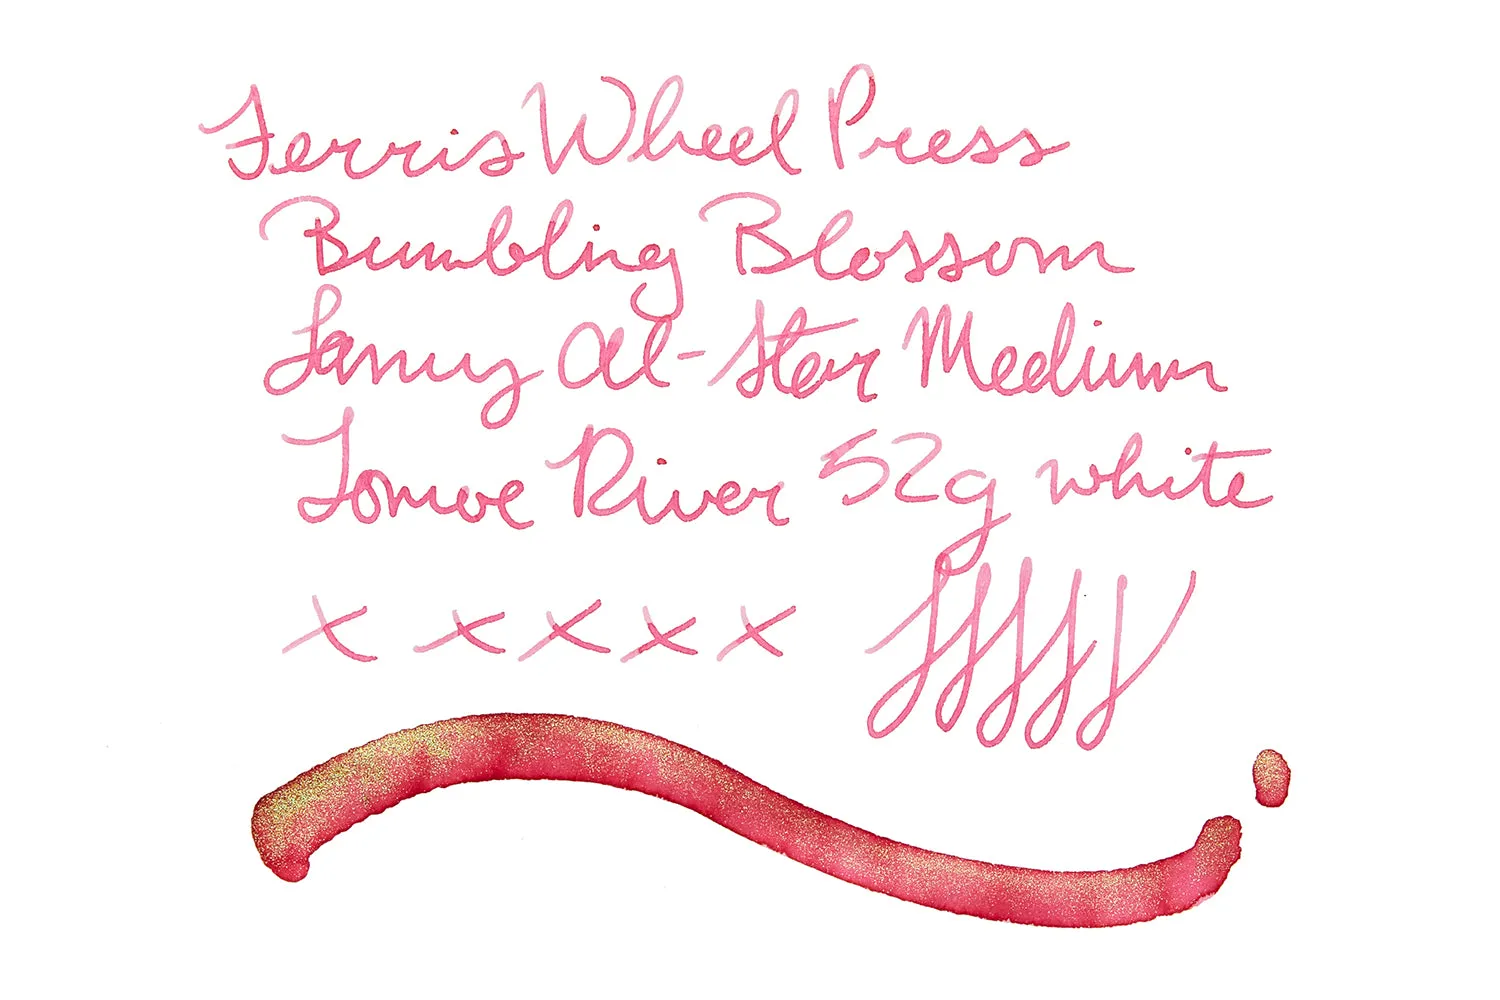 Ferris Wheel Press
Bumbling Blossom
Lamy Al-Star Medium
Tomoe River 52g white
x x x x x